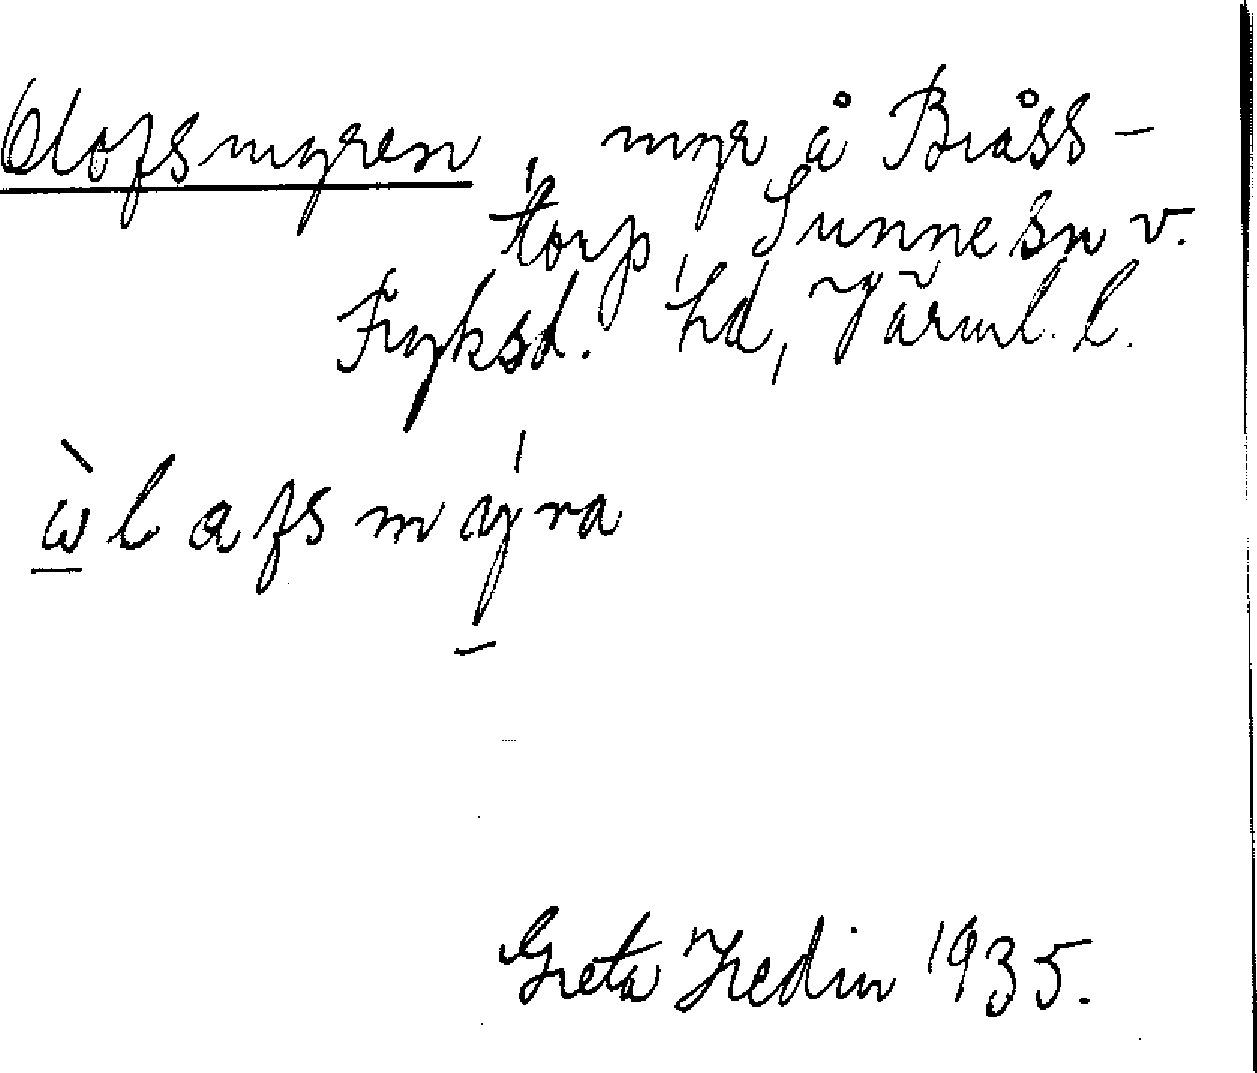 Olofsmyren, myr å Bråss-
torp, Sunne sn v.
Fryksd. hd, Värml. l.
ὼlafsmýra
Greta Hedin 1935.